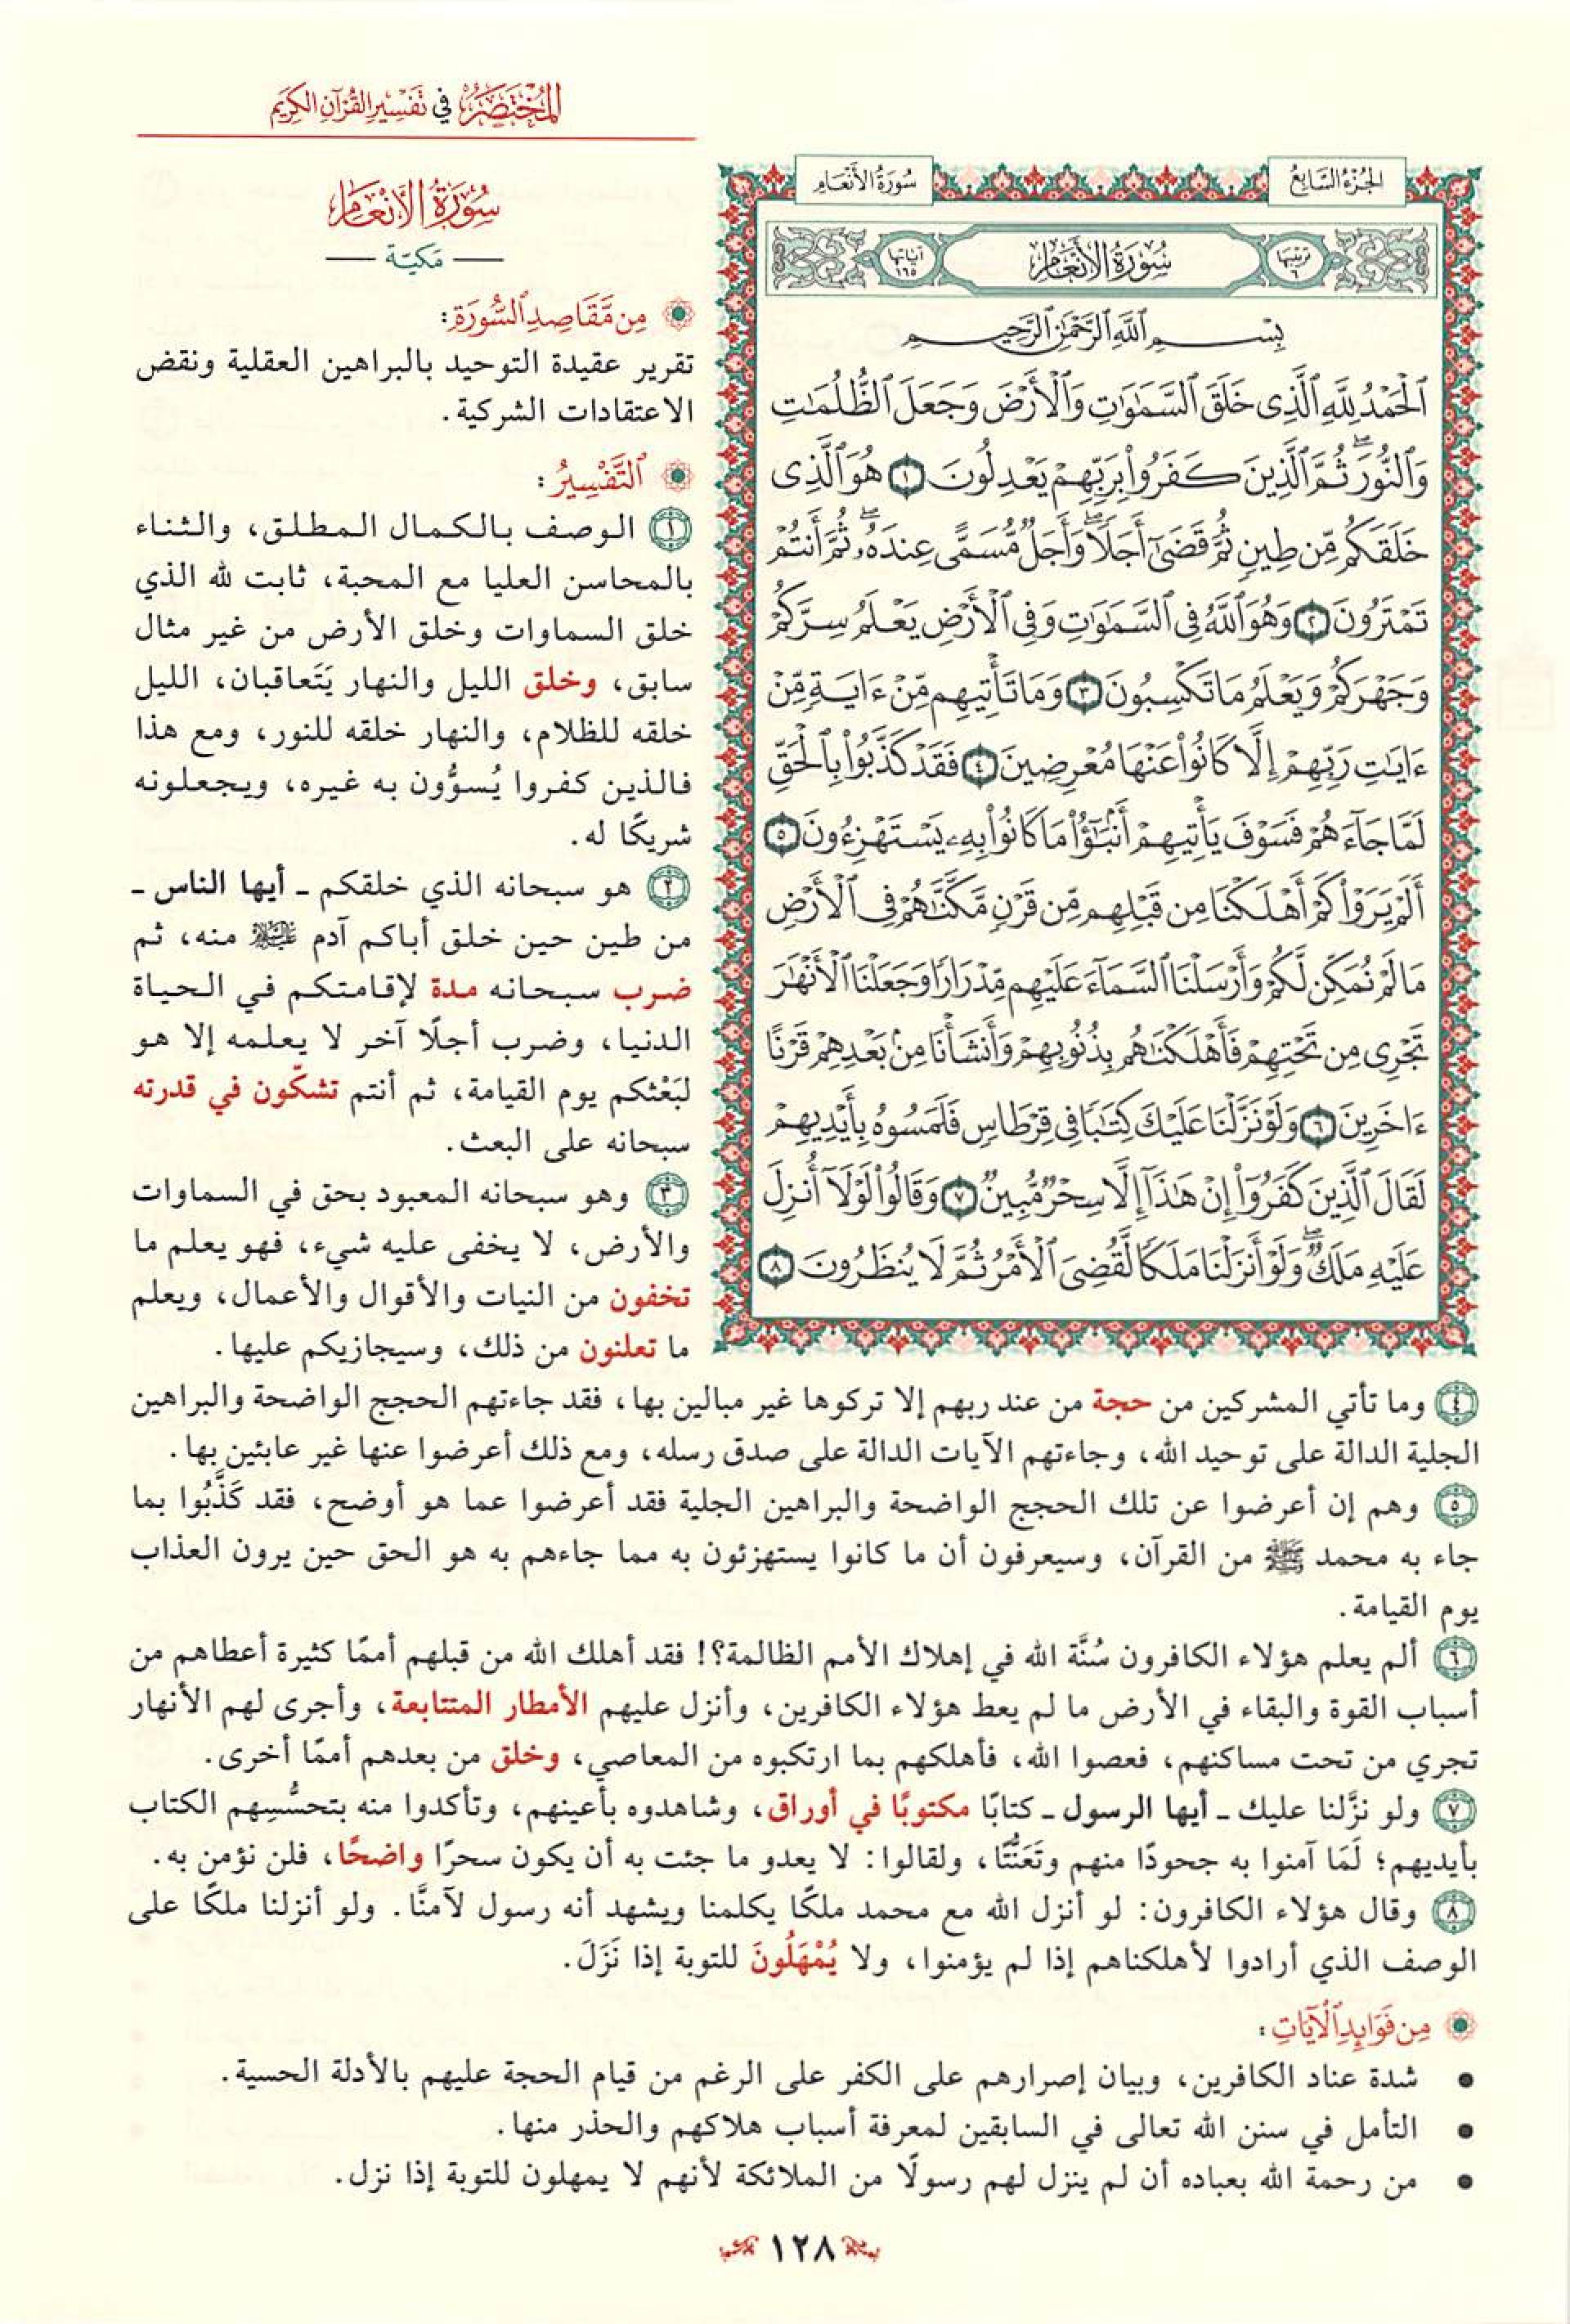 المُخْتَصَرُ في تَفْسِيرِ القُرْآنِ الكَرِيمِ
الجُزْءُ السَّابِعُ
سُورَةُ الأَنْعَامِ
ترتيبها ٦
سُورَةُ الأَنْعَامِ
آياتها ١٦٥
بِسْمِ ٱللَّهِ ٱلرَّحْمَٰنِ ٱلرَّحِيمِ
ٱلْحَمْدُ لِلَّهِ ٱلَّذِى خَلَقَ ٱلسَّمَٰوَٰتِ وَٱلْأَرْضَ وَجَعَلَ ٱلظُّلُمَٰتِ
وَٱلنُّورَۖ ثُمَّ ٱلَّذِينَ كَفَرُوا۟ بِرَبِّهِمْ يَعْدِلُونَ ١ هُوَ ٱلَّذِى
خَلَقَكُم مِّن طِينٍ ثُمَّ قَضَىٰٓ أَجَلًاۖ وَأَجَلٌ مُّسَمًّى عِندَهُۥۖ ثُمَّ أَنتُمْ
تَمْتَرُونَ ٢ وَهُوَ ٱللَّهُ فِى ٱلسَّمَٰوَٰتِ وَفِى ٱلْأَرْضِ يَعْلَمُ سِرَّكُمْ
وَجَهْرَكُمْ وَيَعْلَمُ مَا تَكْسِبُونَ ٣ وَمَا تَأْتِيهِم مِّنْ ءَايَةٍ مِّنْ
ءَايَٰتِ رَبِّهِمْ إِلَّا كَانُوا۟ عَنْهَا مُعْرِضِينَ ٤ فَقَدْ كَذَّبُوا۟ بِٱلْحَقِّ
لَمَّا جَآءَهُمْ فَسَوْفَ يَأْتِيهِمْ أَنۢبَٰٓؤُا۟ مَا كَانُوا۟ بِهِۦ يَسْتَهْزِءُونَ ٥
أَلَمْ يَرَوْا۟ كَمْ أَهْلَكْنَا مِن قَبْلِهِم مِّن قَرْنٍ مَّكَّنَّٰهُمْ فِى ٱلْأَرْضِ
مَا لَمْ نُمَكِّن لَّكُمْ وَأَرْسَلْنَا ٱلسَّمَآءَ عَلَيْهِم مِّدْرَارًا وَجَعَلْنَا ٱلْأَنْهَٰرَ
تَجْرِى مِن تَحْتِهِمْ فَأَهْلَكْنَٰهُم بِذُنُوبِهِمْ وَأَنشَأْنَا مِنۢ بَعْدِهِمْ قَرْنًا
ءَاخَرِينَ ٦ وَلَوْ نَزَّلْنَا عَلَيْكَ كِتَٰبًا فِى قِرْطَاسٍ فَلَمَسُوهُ بِأَيْدِيهِمْ
لَقَالَ ٱلَّذِينَ كَفَرُوٓا۟ إِنْ هَٰذَآ إِلَّا سِحْرٌ مُّبِينٌ ٧ وَقَالُوا۟ لَوْلَآ أُنزِلَ
عَلَيْهِ مَلَكٌۖ وَلَوْ أَنزَلْنَا مَلَكًا لَّقُضِىَ ٱلْأَمْرُ ثُمَّ لَا يُنظَرُونَ ٨
سُورَةُ الأَنْعَامِ
مَكيّة
مِن مَّقَاصِدِ ٱلسُّورَةِ:
تقرير عقيدة التوحيد بالبراهين العقلية ونقض
الاعتقادات الشركية.
ٱلتَّفْسِيرُ:
١ الوصف بالكمال المطلق، والثناء
بالمحاسن العليا مع المحبة، ثابت لله الذي
خلق السماوات وخلق الأرض من غير مثال
سابق، وخلق الليل والنهار يَتَعاقبان، الليل
خلقه للظلام، والنهار خلقه للنور، ومع هذا
فالذين كفروا يُسوُّون به غيره، ويجعلونه
شريكًا له.
٢ هو سبحانه الذي خلقكم ـ أيها الناس ـ
من طين حين خلق أباكم آدم عليه السلام منه، ثم
ضرب سبحانه مدة لإقامتكم في الحياة
الدنيا، وضرب أجلًا آخر لا يعلمه إلا هو
لبَعْثكم يوم القيامة، ثم أنتم تشكّون في قدرته
سبحانه على البعث.
٣ وهو سبحانه المعبود بحق في السماوات
والأرض، لا يخفى عليه شيء، فهو يعلم ما
تخفون من النيات والأقوال والأعمال، ويعلم
ما تعلنون من ذلك، وسيجازيكم عليها.
٤ وما تأتي المشركين من حجة من عند ربهم إلا تركوها غير مبالين بها، فقد جاءتهم الحجج الواضحة والبراهين
الجلية الدالة على توحيد الله، وجاءتهم الآيات الدالة على صدق رسله، ومع ذلك أعرضوا عنها غير عابئين بها.
٥ وهم إن أعرضوا عن تلك الحجج الواضحة والبراهين الجلية فقد أعرضوا عما هو أوضح، فقد كَذَّبُوا بما
جاء به محمد ﷺ من القرآن، وسيعرفون أن ما كانوا يستهزئون به مما جاءهم به هو الحق حين يرون العذاب
يوم القيامة.
٦ ألم يعلم هؤلاء الكافرون سُنَّة الله في إهلاك الأمم الظالمة؟! فقد أهلك الله من قبلهم أممًا كثيرة أعطاهم من
أسباب القوة والبقاء في الأرض ما لم يعط هؤلاء الكافرين، وأنزل عليهم الأمطار المتتابعة، وأجرى لهم الأنهار
تجري من تحت مساكنهم، فعصوا الله، فأهلكهم بما ارتكبوه من المعاصي، وخلق من بعدهم أممًا أخرى.
٧ ولو نزَّلنا عليك ـ أيها الرسول ـ كتابًا مكتوبًا في أوراق، وشاهدوه بأعينهم، وتأكدوا منه بتحسُّسِهم الكتاب
بأيديهم؛ لَمَا آمنوا به جحودًا منهم وتَعَنُّتًا، ولقالوا: لا يعدو ما جئت به أن يكون سحرًا واضحًا، فلن نؤمن به.
٨ وقال هؤلاء الكافرون: لو أنزل الله مع محمد ملكًا يكلمنا ويشهد أنه رسول لآمنَّا. ولو أنزلنا ملكًا على
الوصف الذي أرادوا لأهلكناهم إذا لم يؤمنوا، ولا يُمْهَلُونَ للتوبة إذا نَزَلَ.
مِن فَوَائِدِ ٱلْآيَاتِ:
• شدة عناد الكافرين، وبيان إصرارهم على الكفر على الرغم من قيام الحجة عليهم بالأدلة الحسية.
• التأمل في سنن الله تعالى في السابقين لمعرفة أسباب هلاكهم والحذر منها.
• من رحمة الله بعباده أن لم ينزل لهم رسولًا من الملائكة لأنهم لا يمهلون للتوبة إذا نزل.
١٢٨